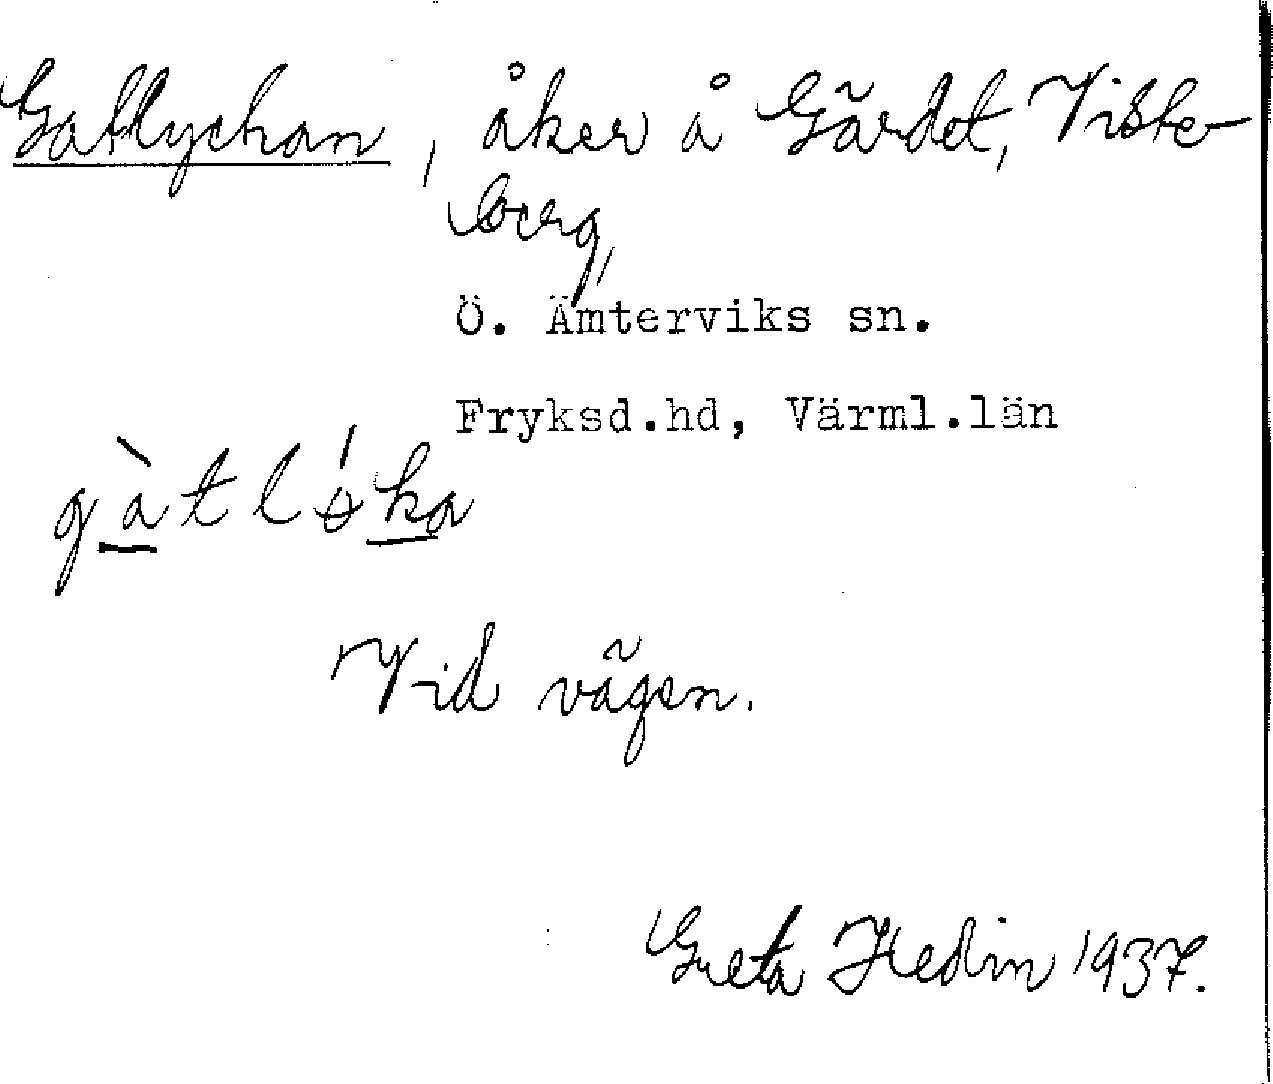 Gatlyckan, åker å Gärdet, Viste-
berg,
Ö. Ämterviks sn.
Fryksd.hd, Värml.län
gàtlǿka
Vid vägen.
Greta Hedin 1937.